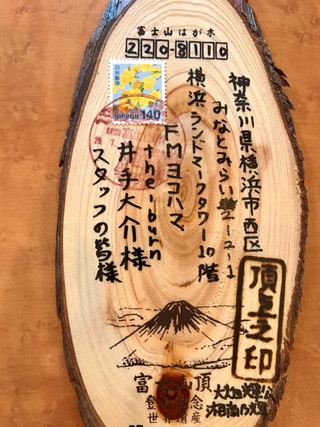 富士山はが木
220-8110
神奈川県横浜市西区
みなとみらい2-2-1
横浜ランドマークタワー10階
FMヨコハマ
the burn
井手大介様
スタッフの皆様
日本郵便
NIPPON 140
頂上之印
富士山頂
登
念
世界
産